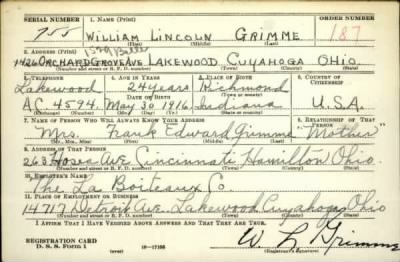 SERIAL NUMBER 1. NAME (Print) ORDER NUMBER
755 WILLIAM LINCOLN GRIMME 187
(First) (Middle) (Last)
2. ADDRESS (Print)
1426 ORCHARD GROVE AVE LAKEWOOD, CUYAHOGA OHIO.
(Number and street or R. F. D. number) (Town) (County) (State)
3. TELEPHONE 4. AGE IN YEARS 5. PLACE OF BIRTH 6. COUNTRY OF CITIZENSHIP
Lakewood 24 years Richmond
DATE OF BIRTH (Town or county)
AC. 4594. May 30 1916 Indiana U.S.A.
(Exchange) (Number) (Mo.) (Day) (Yr.) (State or country)
7. NAME OF PERSON WHO WILL ALWAYS KNOW YOUR ADDRESS 8. RELATIONSHIP OF THAT PERSON
Mrs. Frank Edward Grimme "Mother"
(Mr., Mrs., Miss) (First) (Middle) (Last)
9. ADDRESS OF THAT PERSON
263 Hosea Ave Cincinnati Hamilton Ohio.
(Number and street or R. F. D. number) (Town) (County) (State)
10. EMPLOYER'S NAME
The La Boiteaux Co.
11. PLACE OF EMPLOYMENT OR BUSINESS
14717 Detroit Ave. Lakewood Cuyahoga Ohio
(Number and street or R. F. D. number) (Town) (County) (State)
I AFFIRM THAT I HAVE VERIFIED ABOVE ANSWERS AND THAT THEY ARE TRUE.
REGISTRATION CARD
D. S. S. Form 1 16-17105 W L Grimme
(Registrant's signature)